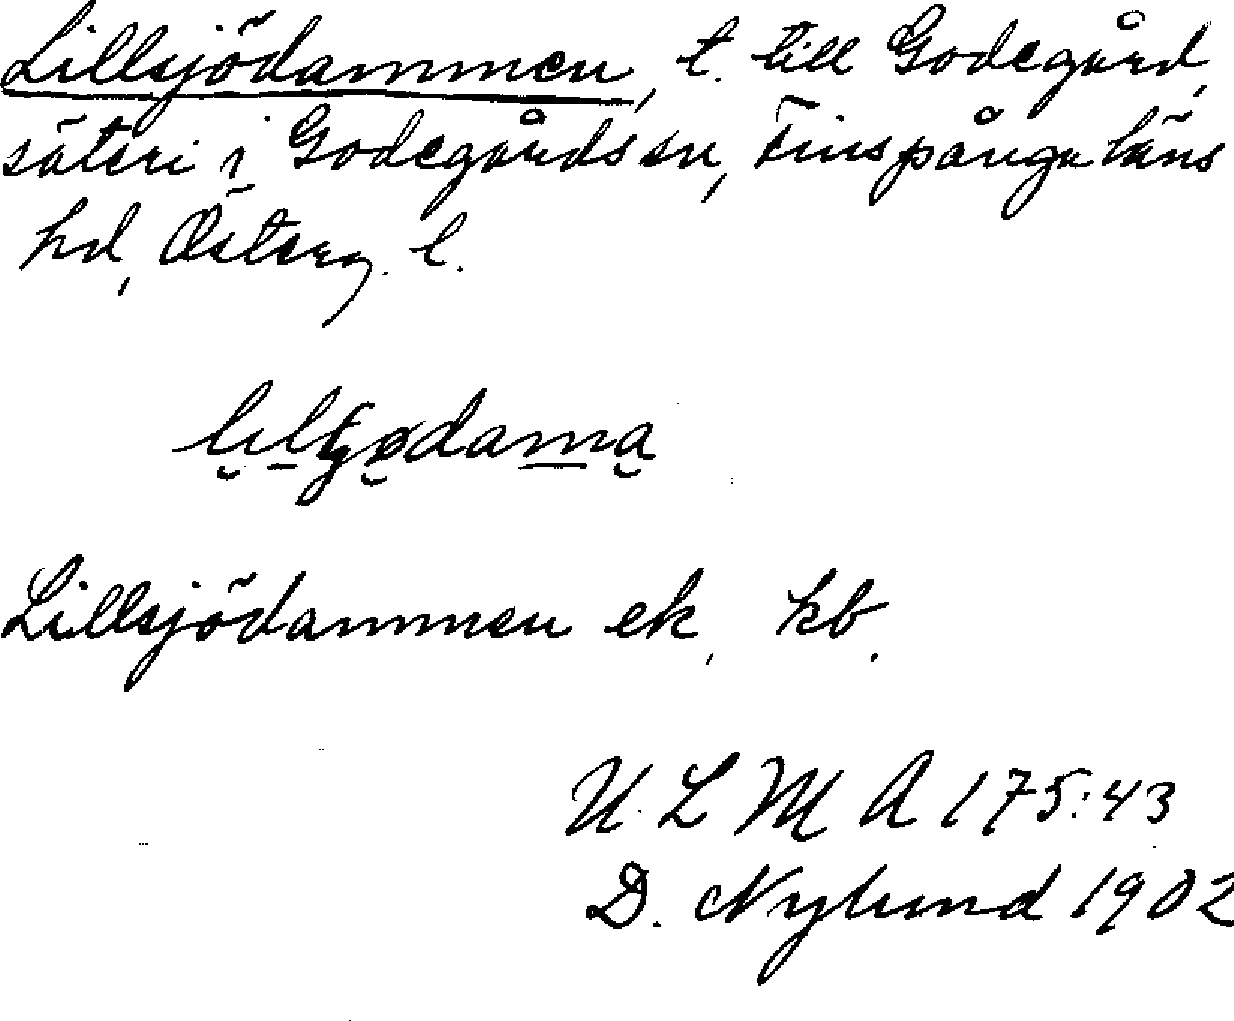 Lillsjödammen, t. till Godegård,
säteri i Godegårds sn, Finspånga läns
hd, Österg. l.
Lillsjödammen ek, kb.
U L M A 175:43
D. Nylund 1902